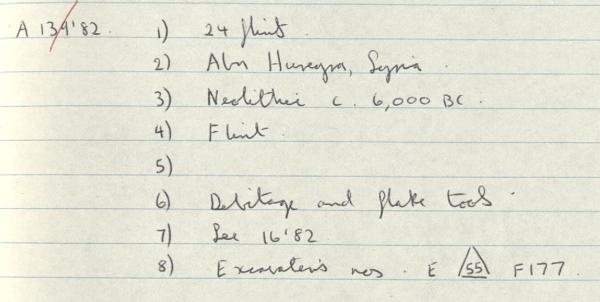 A 139'82. 1) 24 flint.
2) Abu Hureyra, Syria.
3) Neolithic c. 6,000 BC.
4) Flint.
5)
6) Debitage and flake tools.
7) See 16'82
8) Excavators nos. E 55 F177.